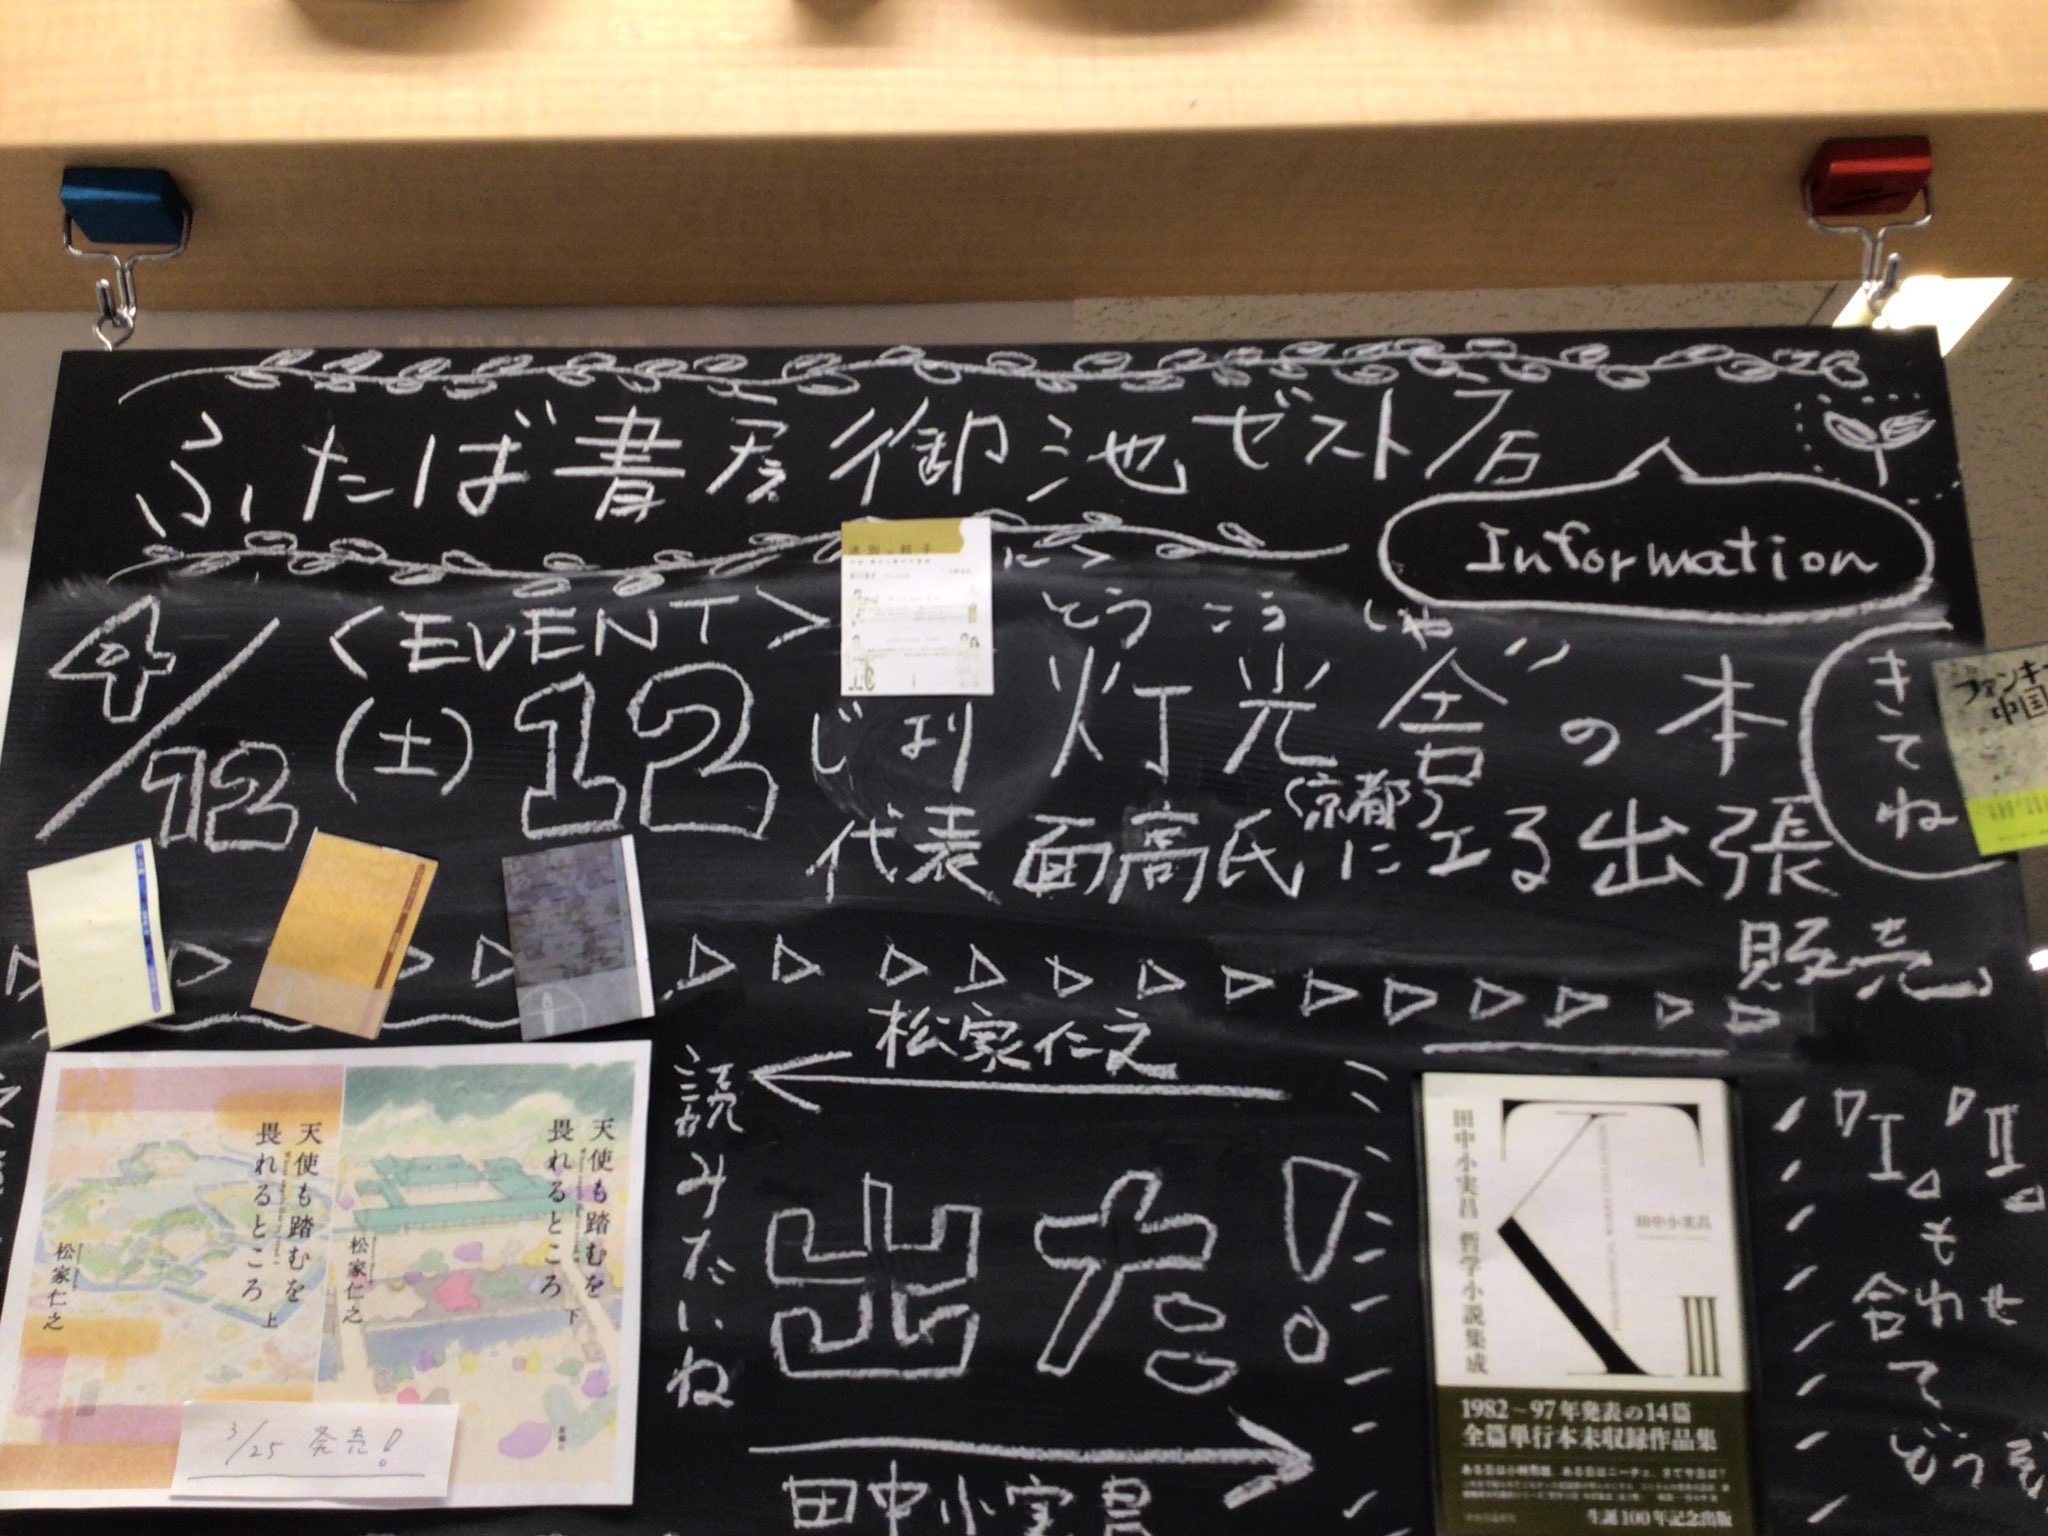 ふたば書房御池ゼスト店
Information
<EVENT>
4/12(土)12じより
とうこうしゃ
灯光舎の本
代表面高氏(京都)による出張
販売
きてね
ファンキー
中国
松家仁之
読みたいね
出た!
田中小実昌
天使も踏むを
畏れるところ 上
松家仁之
天使も踏むを
畏れるところ 下
松家仁之
3/25 発売!
田中小実昌 哲学小説集成
田中小実昌
K
III
1982~97年発表の14篇
全篇単行本未収録作品集
生誕100年記念出版
I II も
合わせ
て
どうぞ